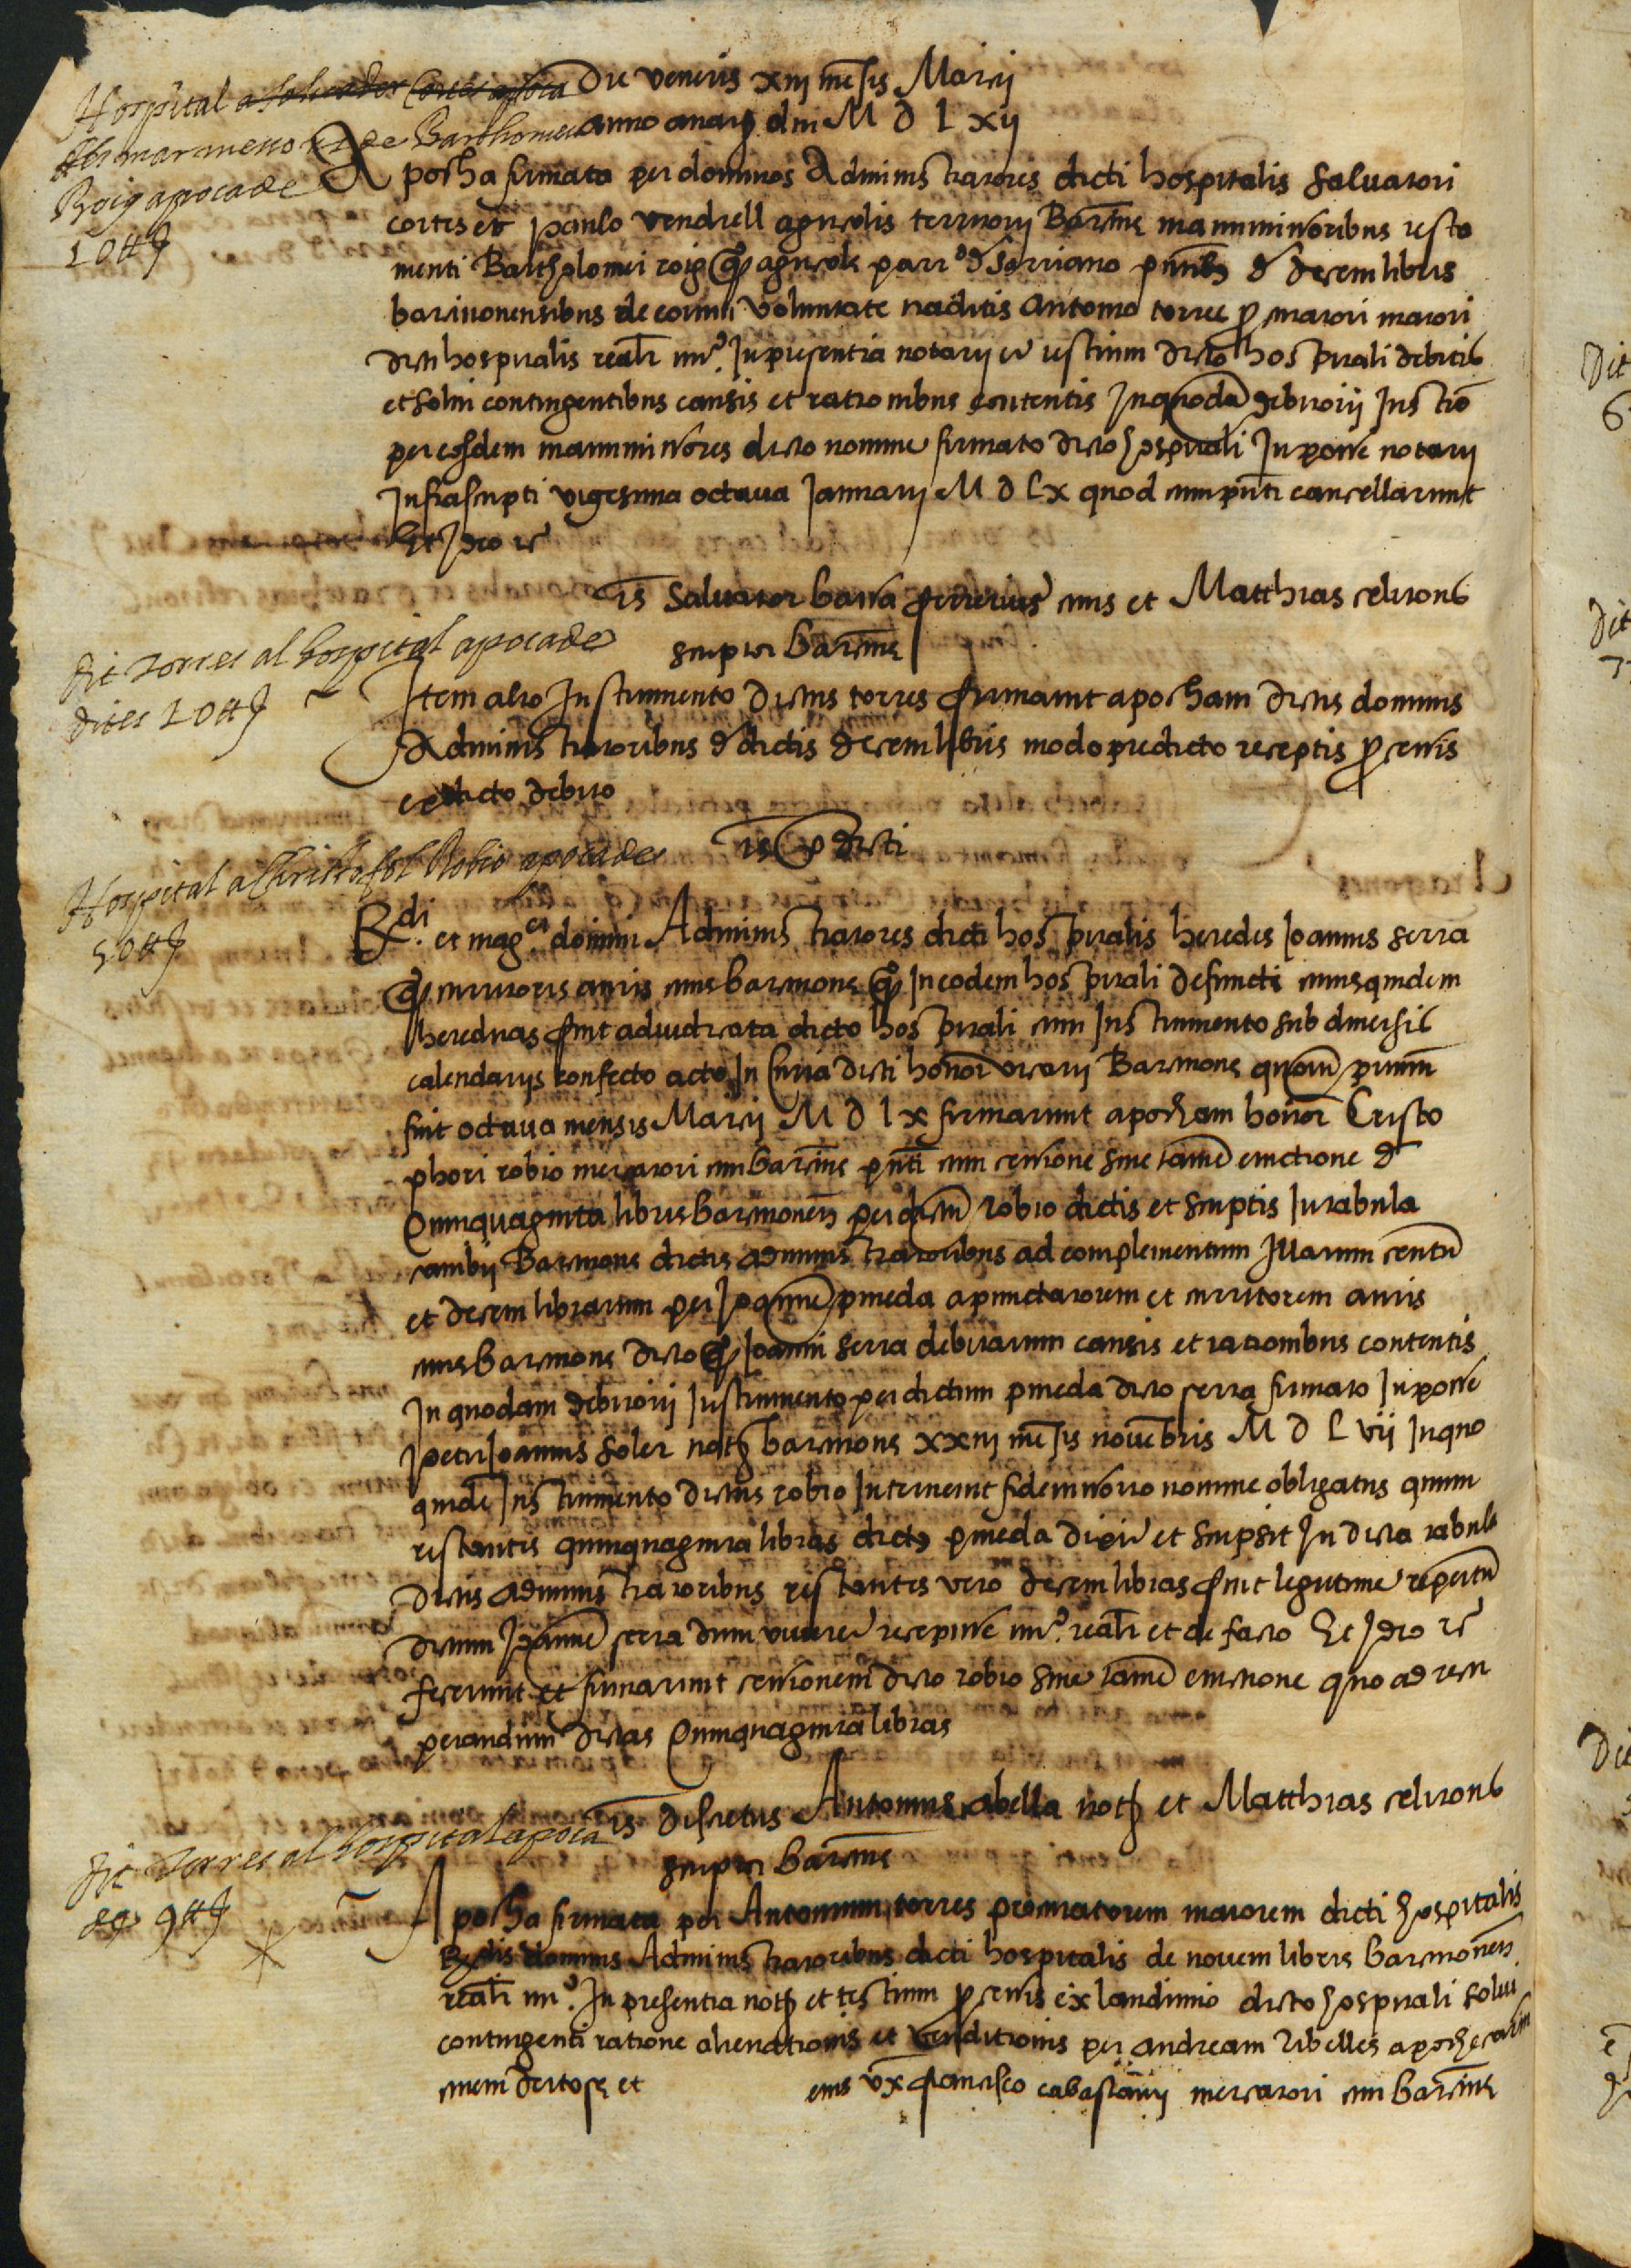 Die veneris xiij mēsis Marcij
anno a natj dni M D L xij
Hospital a saluador Cortes apoca
als marmessors de Barthomeu
Roig apoca de
10 ℔ ſ
Apocha firmata per dominos Administratores dicti hospitalis saluatori
cortes et paulo vendrell agricolis territorij Barcīne manumissoribus testa
menti Bartholomei roig qͦ agricole parrͤ de serriano pñtibͬ de decem libris
barcinonensibus de eorum voluntate traditis antonio torres ꝓcuratori maiori
dicti hospitalis realr̄ nuͦ. In presentia notarij et testium dicto hospitali debitis
et solui contingentibus causis et rationibus contentis In quodā debitorij Instrō
per eosdem manumissores dicto nomine firmato dicto hospitali In posse notarij
Infrascripti vigesima octaua Januarij M D Lx quod cum pñti cancellarunt
Et Ideo ec̃
t̄s Saluator barra ferrerius ciuis et Matthias seluons
scriptor barcīne
dit torres al hospital apoca de
dites 10 ℔ ſ
Item alio Instrumento dictus torres firmauit apocham dictis dominis
Administratoribus de dictis decem libris modo predicto receptis ꝓcessis
ex dicto debito
t̄s ꝓdicti
Hospital a Christofol Robio apoca de
50 ℔ ſ
Rdi. et magci domini Administratores dicti hospitalis heredes Joannis serra
qͦ curritoris auris ciuis barcinone qͦ In eodem hospitali defuncti cuius quidem
hereditas fuit adiudicata dicto hospitali cum Instrumento sub diuersis
calendarijs confecto acto In Curia dicti honor̄ vicarij Barcinone quorū primū
fuit octaua mensis Marcij M D lx firmarunt apocham honor̄ Cristo
phori robio mercatori ciui barcīne pñti cum cessione sine tamē euictione de
Quinquaginta libris barcinoneñ per dictū robio dictis et scriptis In tabula
cambij Barcinone dictis administratoribus ad complementum Illarum centū
et decem librarum per Joannē pineda apunctatorem et curritorem auris
ciuis barcinone dicto qͦ Joanni serra debitarum causis et rationibus contentis
In quodam debitorij Instrumento per dictum pineda dicto serra firmato In posse
petri Joannis soler notj barcinone xxiij mēsis nouēbris M D L vij In quo
quidē Instrumento dictus robio Interuenit fideiussorio nomine obligatus quum
restantes quinquaginta libras dictus pineda dixit et scripsit In dicta tabula
dictis administratoribus restantes vero decem libras fuit legitime repertū
dictum Joannē serra dum viueret recepisse nuͦ. realr̄ et de facto Et Ideo ec̃
fecerunt et firmarunt cessionem dicto robio sine tamē euictione quo ad recu
perandum dictas Quinquaginta libras
t̄s discretus Antonius abella notj et Matthias seluons
scriptor barcīne
dit torres al hospital apoca
de 9 ℔ ſ
Apocha firmata per Antonium torres procuratorem maiorem dicti hospitalis
Rdis dominis Administratoribus dicti hospitalis de nouem libris barcinoneñ
realr̄ nuͦ. In presentia notj et testium ꝓcessis ex laudimio dicto hospitali solui
contingenti ratione alienationis et venditionis per andream ribelles apothecariū
ciuem dertose et eius vx francisco cabastany mercatori ciui barcīne